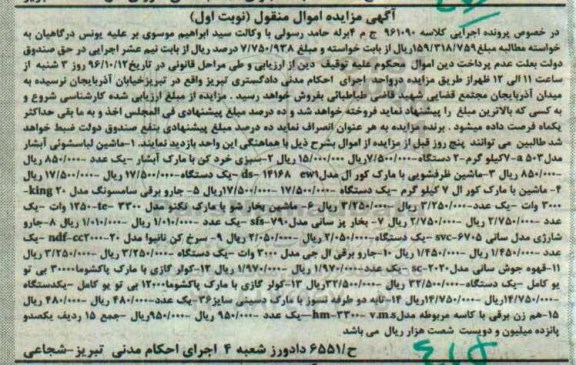 آگهی مزایده اموال منقول (نوبت اول)
در خصوص پرونده اجرایی کلاسه ۹۶۱۰۹۰ ج م ۴ برله حامد رسولی با وکالت سید ابراهیم موسوی بر علیه یونس درگاهیان به
خواسته مطالبه مبلغ ۱۵۹/۳۱۸/۷۵۹ ریال از بابت خواسته و مبلغ ۷/۷۵۰/۹۳۸ درصد ریال از بابت نیم عشر اجرایی در حق صندوق
دولت بعلت عدم پرداخت دین اموال محکوم علیه توقیف دین از ارزیابی و طی مراحل قانونی در تاریخ ۹۶/۱۰/۱۲ روز ۳ شنبه از
ساعت ۱۱ الی ۱۲ ظهر از طریق مزایده در واحد اجرای احکام مدنی دادگستری تبریز واقع در تبریز خیابان آذربایجان نرسیده به
میدان آذربایجان مجتمع قضایی شهید قاضی طباطبائی بفروش خواهد رسید . مزایده از مبلغ ارزیابی شده کارشناسی شروع و
به کسی که بالاترین مبلغ را پیشنهاد نماید فروخته خواهد شد و ده درصد مبلغ پیشنهادی فی المجلس اخذ و به ما بقی حداکثر
یکماه فرصت داده میشود . برنده مزایده به هر عنوان انصراف نماید ده درصد مبلغ پیشنهادی بنفع صندوق دولت ضبط خواهد
شد طالبین می توانند پنج روز قبل از مزایده از اموال بشرح ذیل با هماهنگی این واحد بازدید نمایند. ۱-ماشین لباسشوئی آبشار
مدل a۵۰۳-۷کیلو گرم-۲ دستگاه-۷/۵۰۰/۰۰۰ریال ۱۵/۰۰۰/۰۰۰ ریال ۲-سبزی خرد کن با مارک آبشار -یک عدد -۸۵۰/۰۰۰ ریال
-۸۵۰/۰۰۰ ریال ۳-ماشین ظرفشویی با مارک کور ال مدل ds- ۱۴۱۶۸ ew۱ -یک دستگاه-۱۷/۵۰۰/۰۰۰ ریال -۱۷/۵۰۰/۰۰۰ ریال
۴- ماشین با مارک کور ال ۷ کیلو گرم -یک دستگاه -۱۷/۵۰۰/۰۰۰ -۱۷/۵۰۰/۰۰۰ریال ۵- جارو برقی سامسونگ مدل king- ۲۰
۳۰۰۰ وات -یک عدد-۳/۲۵۰/۰۰۰ ریال -۳/۲۵۰/۰۰۰ ریال ۶- ماشین بخار شو با مارک تکنو مدل te- ۳۳۰۰ -۱۲۵۰ وات -یک
عدد -۲/۷۵۰/۰۰۰ ریال -۲/۷۵۰/۰۰۰ ریال ۷- بخار پز سانی مدل sfs-۷۹۰ -یک عدد -۱/۰۱۰/۰۰۰ ریال -۱/۰۱۰/۰۰۰ ریال ۸-جارو
شارژی مدل سانی svc-۶۷۰۵ -یک دستگاه -۲/۰۵۰/۰۰۰ ریال -۲/۰۵۰/۰۰۰ ریال ۹- سرخ کن نانیوا مدل ndf-cc۲۰۰۰-۲۰ -یک
عدد -۱/۴۵۰/۰۰۰ ریال -۱/۴۵۰/۰۰۰ ریال ۱۰-جارو برقی ال جی مدل ۳۰۰۰ وات -یک دستگاه -۳/۲۵۰/۰۰۰ ریال -۳/۲۵۰/۰۰۰ ریال
۱۱-قهوه جوش سانی مدل sc-۲۰۲۰ -یک عدد -۱/۹۷۰/۰۰۰ ریال -۱/۹۷۰/۰۰۰ ریال ۱۲-کولر گازی با مارک پاکشوما ۳۰۰۰۰ بی تو
یو کامل -یک دستگاه-۳۲/۵۰۰/۰۰۰ ریال -۳۲/۵۰۰/۰۰۰ریال ۱۳-کولر گازی با مارک پاکشوما ۱۲۰۰۰ بی تو یو کامل -یکدستگاه
-۱۴/۷۵۰/۰۰۰ریال -۱۴/۷۵۰/۰۰۰ریال ۱۴-تابه دو طرفه نسوز با مارک دسینی سایز ۳۶-یک عدد-۴۸۰/۰۰۰ ریال -۴۸۰/۰۰۰ ریال
۱۵-هم زن برقی با کاسه مربوطه مدل hm-۳۳۰۰- ۷.ms -یک عدد -۹۵۰/۰۰۰ ریال -۹۵۰/۰۰۰ریال -جمع ۱۵ ردیف یکصدو
پانزده میلیون و دویست شصت هزار ریال می باشد
ح/۶۵۵۱ دادورز شعبه ۴ اجرای احکام مدنی تبریز-شجاعی